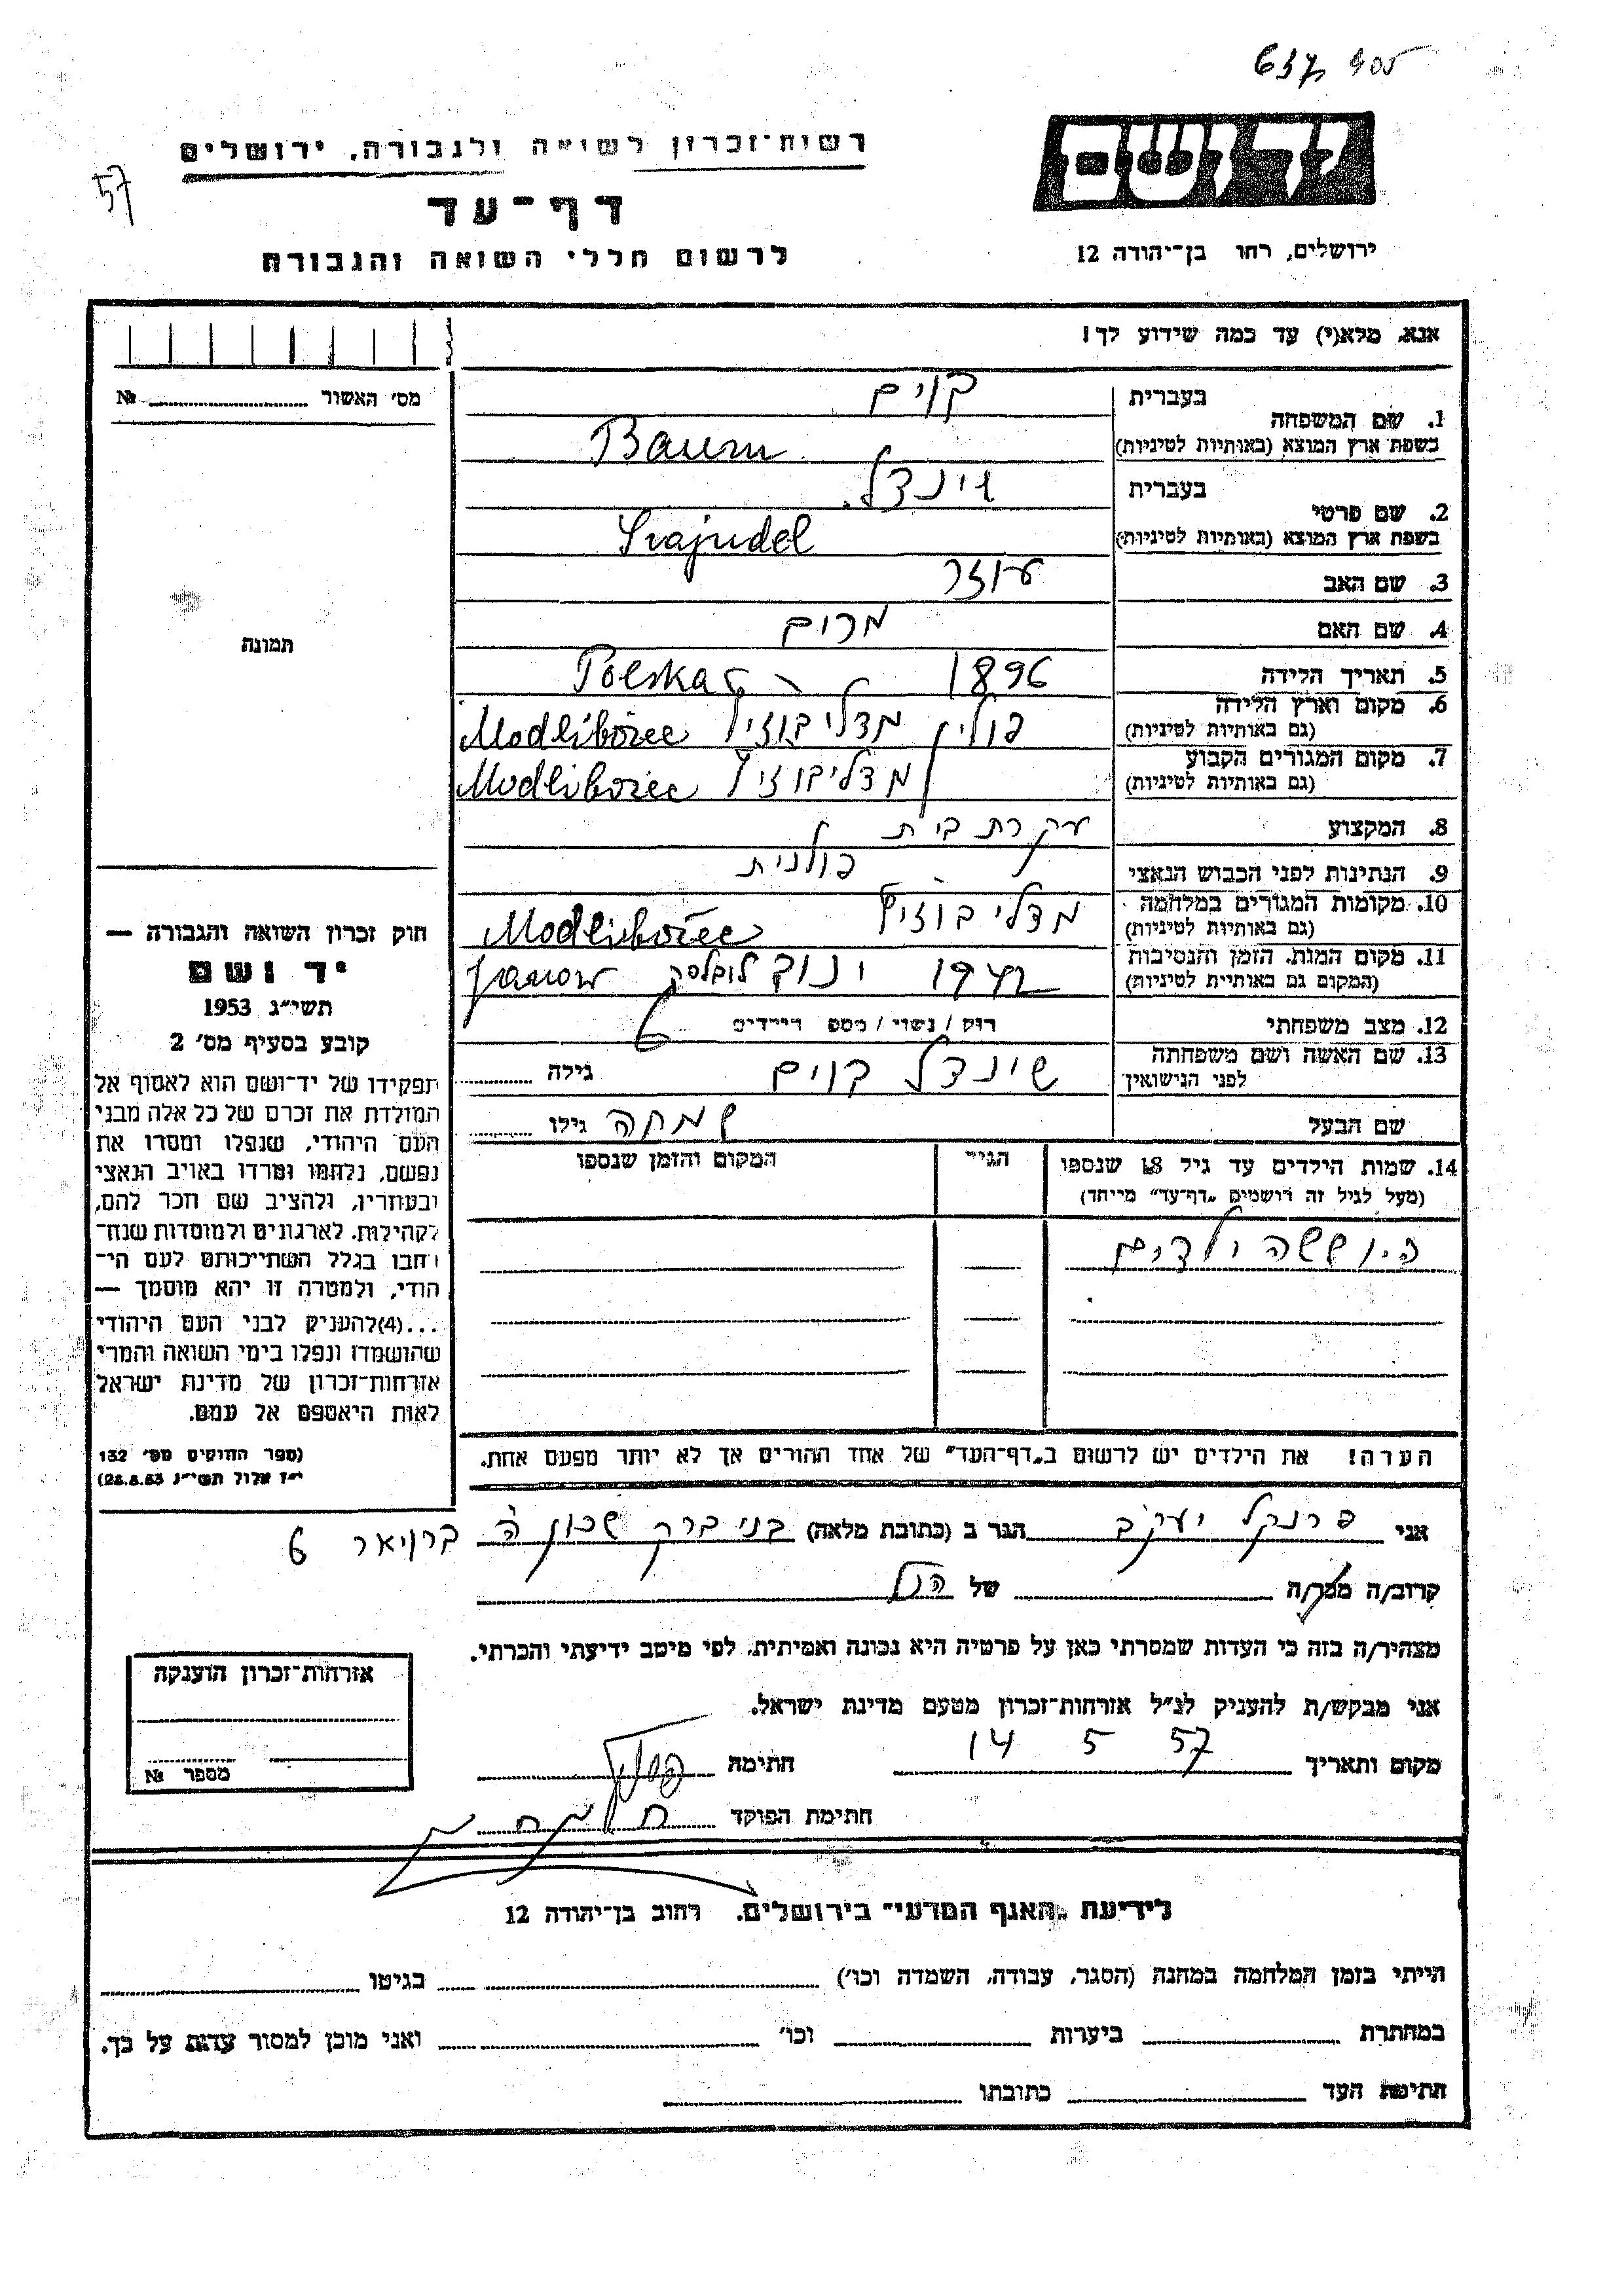 637 905
רשות־זכרון לשואה ולגבורה, ירושלים
יד ושם
57
דף־עד
ירושלים, רחו בן־יהודה 12
לרשום חללי השואה והגבורה
אנא, מלא(י) עד כמה שידוע לך!
מס׳ האשור № 
תמונה
1. שם המשפחה
בעברית בוים
בשפת ארץ המוצא (באותיות לטיניות) Baum
2. שם פרטי
בעברית שינדל
בשפת ארץ המוצא (באותיות לטיניות) Szajndel
3. שם האב עוזר
4. שם האם מרים
5. תאריך הלידה 1896 Polska
6. מקום וארץ הלידה (גם באותיות לטיניות) פולין מדליבוזיץ Modliborzec
7. מקום המגורים הקבוע (גם באותיות לטיניות) מדליבוזיץ Modliborzec
8. המקצוע עקרת בית
9. הנתינות לפני הכבוש הנאצי פולנית
10. מקומות המגורים במלחמה (גם באותיות לטיניות) מדליבוזיץ Modliborzec
11. מקום המות, הזמן והנסיבות (המקום גם באותיות לטיניות) 1942 ינוב לובלסק Janow
12. מצב משפחתי רוק / נשוי / מספר הילדים 6
13. שם האשה ושם משפחתה לפני הנישואין שינדל בוים גילה
שם הבעל שמחה גילו
14. שמות הילדים עד גיל 18 שנספו הגיל המקום והזמן שנספו
(מעל לגיל זה רושמים „דף־עד” מייחד)
היו ששה ילדים
הערה! את הילדים יש לרשום ב„דף־העד” של אחד ההורים אך לא יותר מפעם אחת.
חוק זכרון השואה והגבורה —
יד ושם
תשי״ג 1953
קובע בסעיף מס׳ 2
תפקידו של יד־ושם הוא לאסוף אל
המולדת את זכרם של כל אלה מבני
העם היהודי, שנפלו ומסרו את
נפשם, נלחמו ומרדו באויב הנאצי
ובעוזריו, ולהציב שם וזכר להם,
לקהילות, לארגונים ולמוסדות שנח־
רבו בגלל השתייכותם לעם הי־
הודי, ולמטרה זו יהא מוסמך —
...(4) להעניק לבני העם היהודי
שהושמדו ונפלו בימי השואה והמרי
אזרחות־זכרון של מדינת ישראל
לאות היאספם אל עמם.
(ספר החוקים מס׳ 132
י״ז אלול תשי״ג 28.8.53)
אני פרנקל יעקב הגר ב (כתובת מלאה) בני ברק שכון ה׳ ברויאר 6
קרוב/ה מכר/ה של הנ״ל
מצהיר/ה בזה כי העדות שמסרתי כאן על פרטיה היא נכונה ואמיתית, לפי מיטב ידיעתי והכרתי.
אני מבקש/ת להעניק לנ״ל אזרחות־זכרון מטעם מדינת ישראל.
מקום ותאריך 14 5 57 חתימה
חתימת הפוקד
אזרחות־זכרון הוענקה
מספר №
לידיעת „האגף המדעי” בירושלים, רחוב בן־יהודה 12
הייתי בזמן המלחמה במחנה (הסגר, עבודה, השמדה וכו׳) בגיטו
במחתרת ביערות וכו׳ ואני מוכן למסור עדות על כך.
חתימת העד כתובתו